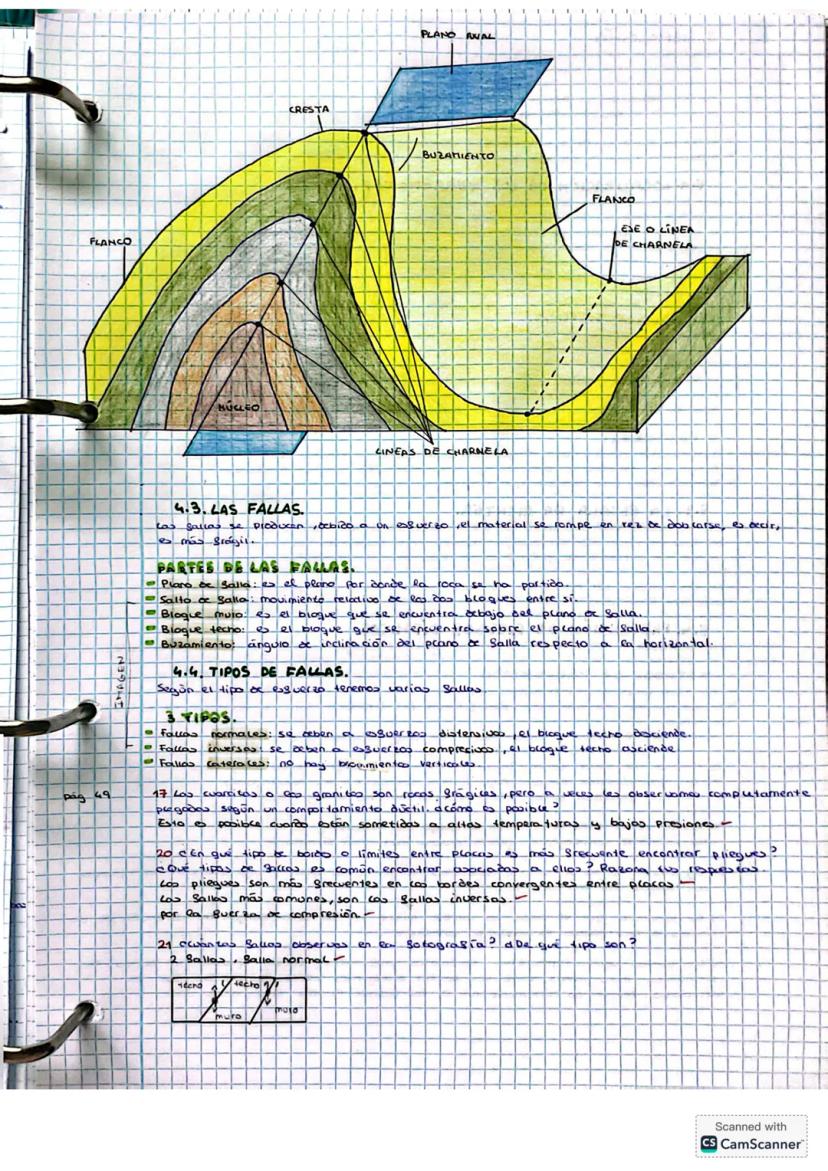 PLANO AXIAL
CRESTA
BUZAMIENTO
FLANCO
EJE O LÍNEA
DE CHARNELA
FLANCO
NÚCLEO
LINEAS DE CHARNELA
4.3. LAS FALLAS.
Las fallas se producen, debido a un esfuerzo, el material se rompe en vez de doblarse, es decir,
es más frágil.
PARTES DE LAS FALLAS.
Plano de falla: es el plano por donde la roca se ha partido.
Salto de falla: movimiento relativo de los dos bloques entre sí.
Bloque muro: es el bloque que se encuentra debajo del plano de falla.
Bloque techo: es el bloque que se encuentra sobre el plano de falla.
Buzamiento: ángulo de inclinación del plano de falla respecto a la horizontal.
IMAGEN
4.4. TIPOS DE FALLAS.
Según el tipo de esfuerzo tenemos varias fallas
3 TIPOS.
Fallas normales: se deben a esfuerzos distensivos, el bloque techo desciende.
Fallas inversas: se deben a esfuerzos compresivos, el bloque techo asciende
Fallas laterales: no hay movimientos verticales.
pág 49
17 Las cuarcitas o los granitos son rocas frágiles, pero a veces les observamos completamente
plegadas según un comportamiento dúctil. ¿Cómo es posible?
Esto es posible cuando están sometidas a altas temperaturas y bajas presiones.
20 ¿En qué tipo de borde o límites entre placas es más frecuente encontrar pliegues?
¿Qué tipos de fallas es común encontrar asociadas a ellos? Razona tus respuestas.
Los pliegues son más frecuentes en los bordes convergentes entre placas
Las fallas más comunes, son las fallas inversas.
por la fuerza de compresión.
21 ¿Cuántas fallas observas en la fotografía? ¿De qué tipo son?
2 fallas, falla normal
techo
techo
muro
muro
Scanned with
CS CamScanner